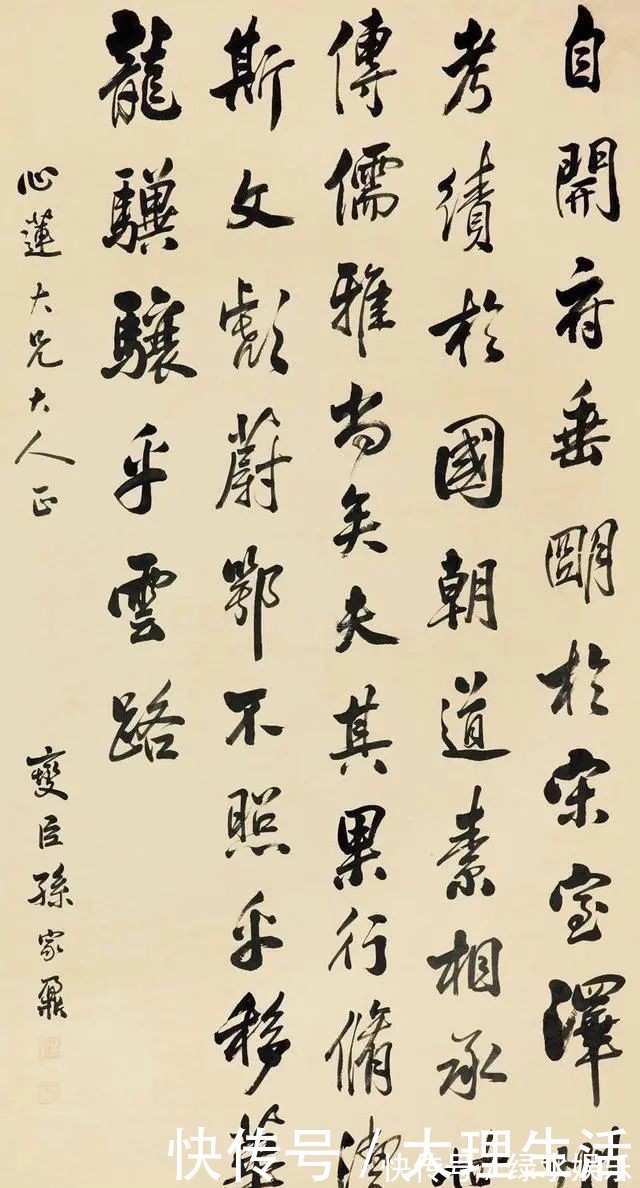 自開府垂朙於宋室澤
考績於國朝道素相承
傳儒雅尚矣夫其果行脩潔
斯文彪蔚鄂不照乎移華
龍驥驤乎雲路
心蓮大兄大人正
燮臣孫家鼐
快传号 / 大理生活
快传号